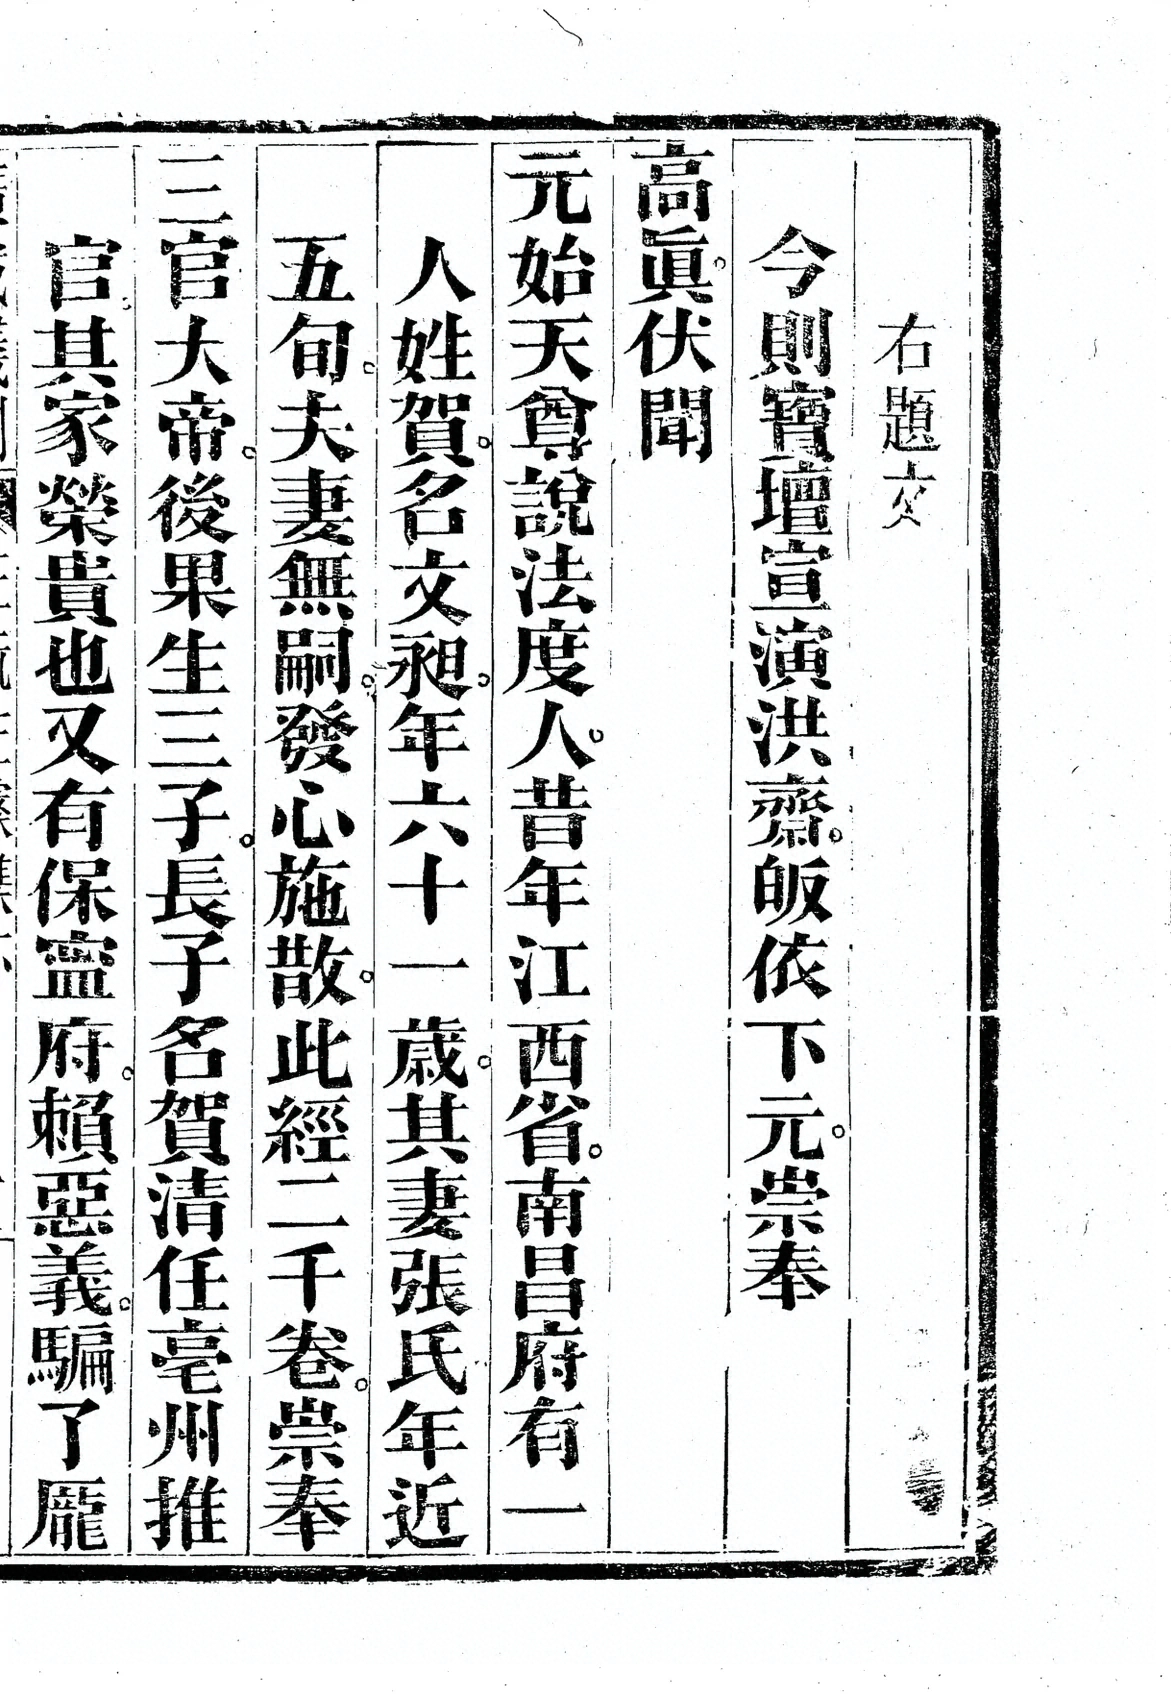 右題文
今則寶壇宣演洪齋皈依下元崇奉
高眞伏聞
元始天尊說法度人昔年江西省南昌府有一
人姓賀名文昶年六十一歲其妻張氏年近
五旬夫妻無嗣發心施散此經二千卷崇奉
三官大帝後果生三子長子名賀清任亳州推
官其家榮貴也又有保寧府賴惡義騙了龐